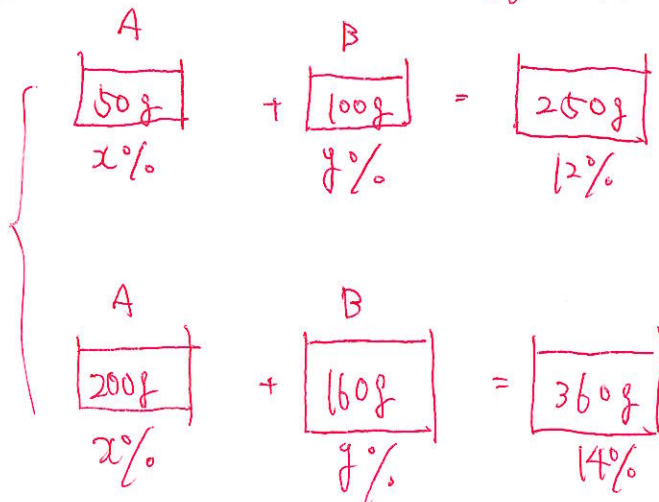 A B
50g + 100g = 250g
x% y% 12%
A B
200g + 160g = 360g
x% y% 14%